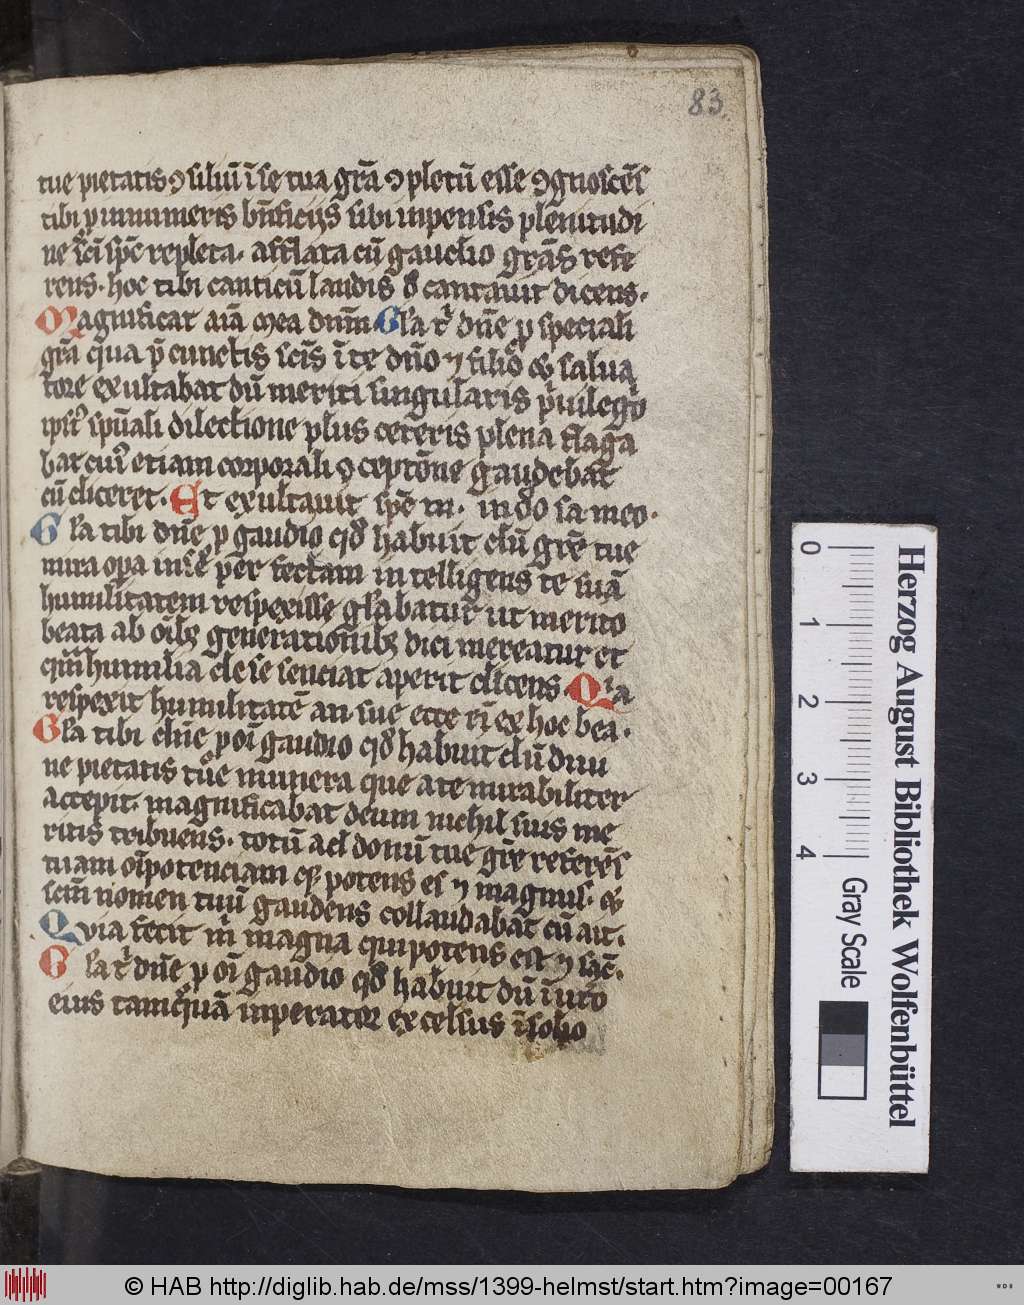 83
tue pietatis ꝯsiliuī ī se tua grã ꝯpletū esse ꝯgnoscẽs
tibi ꝓ innumeris bñficijs sibi inpensis plenitudi
ne sc̃i spc̃ repleta. afflata cū gaudio grãs refe
rens. hoc tibi canticū laudis cantauit dicens.
Magnificat aĩa mea dnm̃ Gl'a t' dñe ꝓ speciali
grã qua p̄ cunctis scĩs ī te dño ⁊ filio salua
tore exultabat dū meriti singularis p'uilegio
sp̃uali dilectione plus ceteris plena flagra
bat cui' etiam corporali ꝯceptõne gaudebat
cū diceret. Et exultauit spc̃ m. in deo sa meo.
Gl'a tibi dñe ꝓ gaudio qd' habuit dū grẽ tue
mira opa in se perfectam intelligens te suã
humilitatem respexisse gl'abatur ut merito
beata ab oĩbꝫ generationibꝫ dici mereatur et
qm̃ humilia de se senciat aperit dicens. Qia
respexit humilitatẽ an sue ecce eñ ex hoc bea.
Gl'a tibi dñe ꝓ oĩ gaudio qd' habuit dū diui
ne pietatis tue munera que a te mirabiliter
accepit. magnificabat deum nichil suis me
ritis tribuens. totū ad donū tue grẽ referẽs
tuam oĩpotenciam qꝫ potens es ⁊ magnus.
scm̃ nomen tuū gaudens collaudabat cū ait.
Quia fecit m' magna qui potens est ⁊ sac̃.
Gl'a t' dñe ꝓ oĩ gaudio qd' habuit dū ī uto
eius tamquã inperator excelsus ī solio
0 1 2 3 4
Gray Scale
Herzog August Bibliothek Wolfenbüttel
© HAB http://diglib.hab.de/mss/1399-helmst/start.htm?image=00167